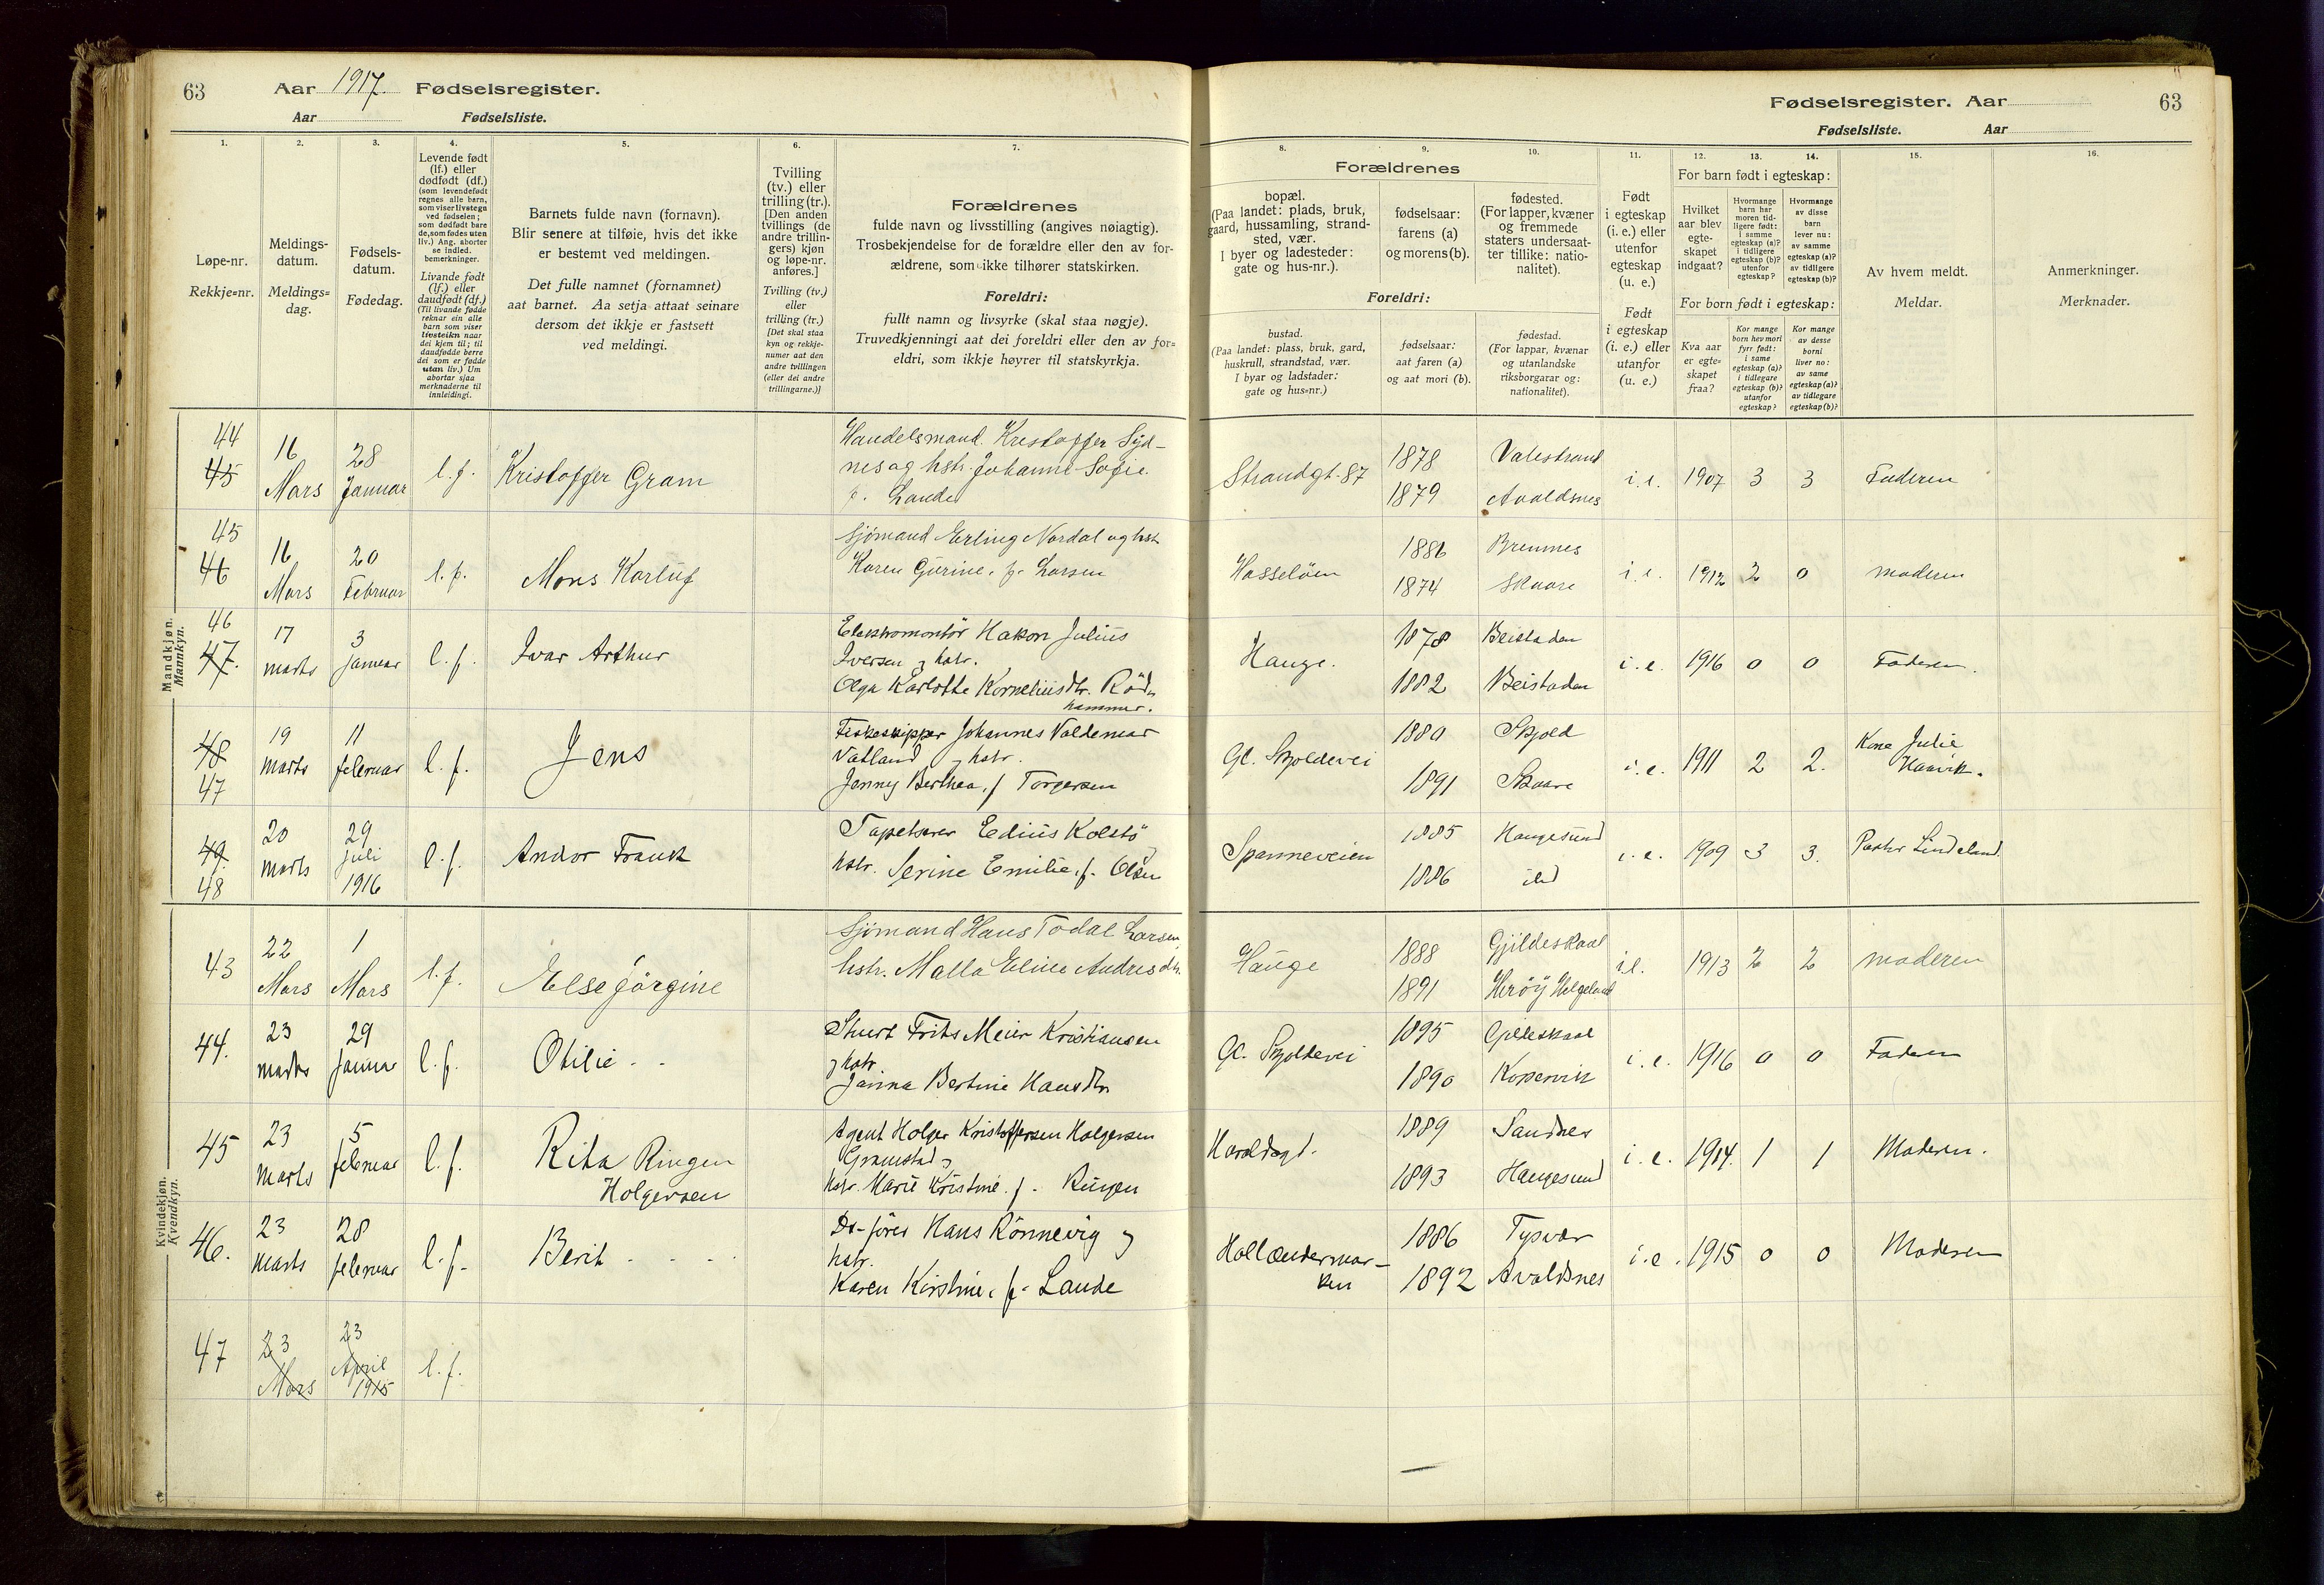 63
Aar 1917. Fødselsregister.
Aar Fødselsliste.
Fødselsregister. Aar
63
Fødselsliste. Aar
1.
Løpe-nr.
Rekkje=nr.
2.
Meldings-
datum.
Meldings=
dag.
3.
Fødsels-
datum.
Fødedag.
4.
Levende født
(lf.) eller
dødfødt (df.)
(som levendefødt
regnes alle barn,
som viser livstegn
ved fødselen;
som dødfødt bare
de, som fødes uten
liv.) Ang. aborter
se indled.
bemerkninger.
Livande født
(lf.) eller
daudfødt (df.)
(Til livande fødde
reknar ein alle
born som viser
livsteikn naar
dei kjem til; til
daudfødde berre
dei som er fødde
utan liv.) Um
abortar sjaa
merknaderne til
innleidingi.
5.
Barnets fulde navn (fornavn).
Blir senere at tilføie, hvis det ikke
er bestemt ved meldingen.
Det fulle namnet (fornamnet)
aat barnet. Aa setja attaat seinare
dersom det ikkje er fastsett
ved meldingi.
6.
Tvilling
(tv.) eller
trilling (tr.).
[Den anden
tvillings (de
andre trillin-
gers) kjøn
og løpe-nr.
anføres.]
Tvilling (tv.)
eller
trilling (tr.)
[Det skal staa
kyn og rekkje-
numer aat den
andre tvillingen
(eller dei andre
trillingarne.)]
7.
Forældrenes
fulde navn og livsstilling (angives nøiagtig).
Trosbekjendelse for de forældre eller den av for-
ældrene, som ikke tilhører statskirken.
Foreldri:
fullt namn og livsyrke (skal staa nøgje).
Truvedkjenningi aat dei foreldri eller den av for=
eldri, som ikkje høyrer til statskyrkja.
Forældrenes
8.
bopæl.
(Paa landet: plads, bruk,
gaard, hussamling, strand-
sted, vær.
I byer og ladesteder:
gate og hus-nr.).
9.
fødselsaar:
farens (a)
og morens (b).
10.
fødested.
(For lapper, kvæner
og fremmede
staters undersaat-
ter tillike: natio-
nalitet).
Foreldri:
bustad.
(Paa landet: plass, bruk, gard,
huskrull, strandstad, vær.
I byar og ladstader:
gate og hus=nr.)
fødselsaar:
aat faren (a)
og aat mori (b).
fødestad.
(For lappar, kvænar
og utanlandske
riksborgarar og:
nationalitet).
11.
Født
i egteskap
(i. e.) eller
utenfor
egteskap
(u. e.)
Født
i egteskap
(i. e.) eller
utanfor
(u. e.)
For barn født i egteskap:
12.
Hvilket
aar blev
egte-
skapet
indgaat?
13.
Hvormange
barn har
moren tid-
ligere født:
i samme
egteskap (a)?
i tidligere
egteskap (b)?
utenfor
egteskap?
14.
Hvormange
av disse
barn
lever nu:
av samme
egteskap (a)?
av tidligere
egteskap (b)?
For born født i egteskap:
Kva aar
er egte=
skapet
fraa?
Kor mange
born hev mori
fyrr født:
i same
egteskap (a)?
i tidlegare
egteskap (b)?
utanfor
egteskap?
Kor mange
av desse
borni
liver no:
av same
egteskap (a)?
av tidlegare
egteskap (b)?
15.
Av hvem meldt.
Meldar.
16.
Anmerkninger.
Merknader.
Mandkjøn.
Mannkyn.
44
45
16
Mars
28
Januar
l.f.
Kristoffer Gram
Handelsmand Kristoffer Syd-
nes og hstr. Johanne Sofie
f. Lande
Strandgt. 87
1878
1879
Valestrand
Avaldsnes
i.e.
1907
3
3
Faderen
45
46
16
Mars
20
Februar
l.f.
Mons Karluf
Sjømand Erling Nordal og hst.
Karen Gurine, f. Larsen
Hasseløen
1886
1874
Bremnes
Skaare
i.e.
1912
2
0
moderen
46
47.
17
marts
3
Januar
l.f.
Ivar Arthur
Elektromontör Hakon Julius
Iversen og hstr.
Olga Karlotte Korneliusdtr. Röd-
hammer.
Hauge.
1878
1882
Beistaden
Beistaden
i.e.
1916
0
0
Faderen.
48
47
19
marts
11
februar
l.f.
Jens
Fiskeskipper Johannes Valdemar
Vatland og hstr.
Jenny Berthea, f Torgersen
Gl. Skjoldevei
1880
1891
Skjold
Skaare
i.e.
1911
2
2.
Kone Julie
Haavik.
49.
48
20
marts
29
juli
1916
l.f.
Andor Frank
Tapetserer Edius Kolstö
hstr. Serine Emilie, f. Olsen
Spanneveien
1885
1886
Haugesund
ibd
i.e.
1909
3
3.
Pastor Lindeland
Kvindekjøn.
Kvendkyn.
43
22
Mars
1
Mars
l.f.
Else Jørgine
Sjømand Hans Todal Larsen,
hstr. Malla Eline Andresdtr.
Hauge
1888
1891
Gjildeskaal
Herøy Helgeland
i.e.
1913
2
2
moderen
44.
23
marts
29
Januar
l.f.
Otilie - -
Stuert Frits Meier Kristiansen
og hstr.
Janna Bertine Hansdtr
Gl. Skjoldevei
1895
1890
Gjildeskaal
Kopervik
i.e.
1916
0
0
Faderen
45
23
marts
5
februar
l.f.
Rita Ringen
Holgersen
Agent Holger Kristoffersen Holgersen
Gramstad og
hstr. Marie Kristine, f. Ringen
Haraldsgt.
1889
1893
Sandnes
Haugesund
i.e.
1914.
1
1
Moderen.
46.
23
marts
28
februar
l.f.
Berit - - -
Ds-förer Hans Rönnevig og
hstr.
Karen Kirstine, f. Lande
Hollændermar-
ken
1886
1892
Tysvær
Avaldsnes
i.e.
1915
0
0
Moderen
47
23
Mars
23
April
1915
l.f.